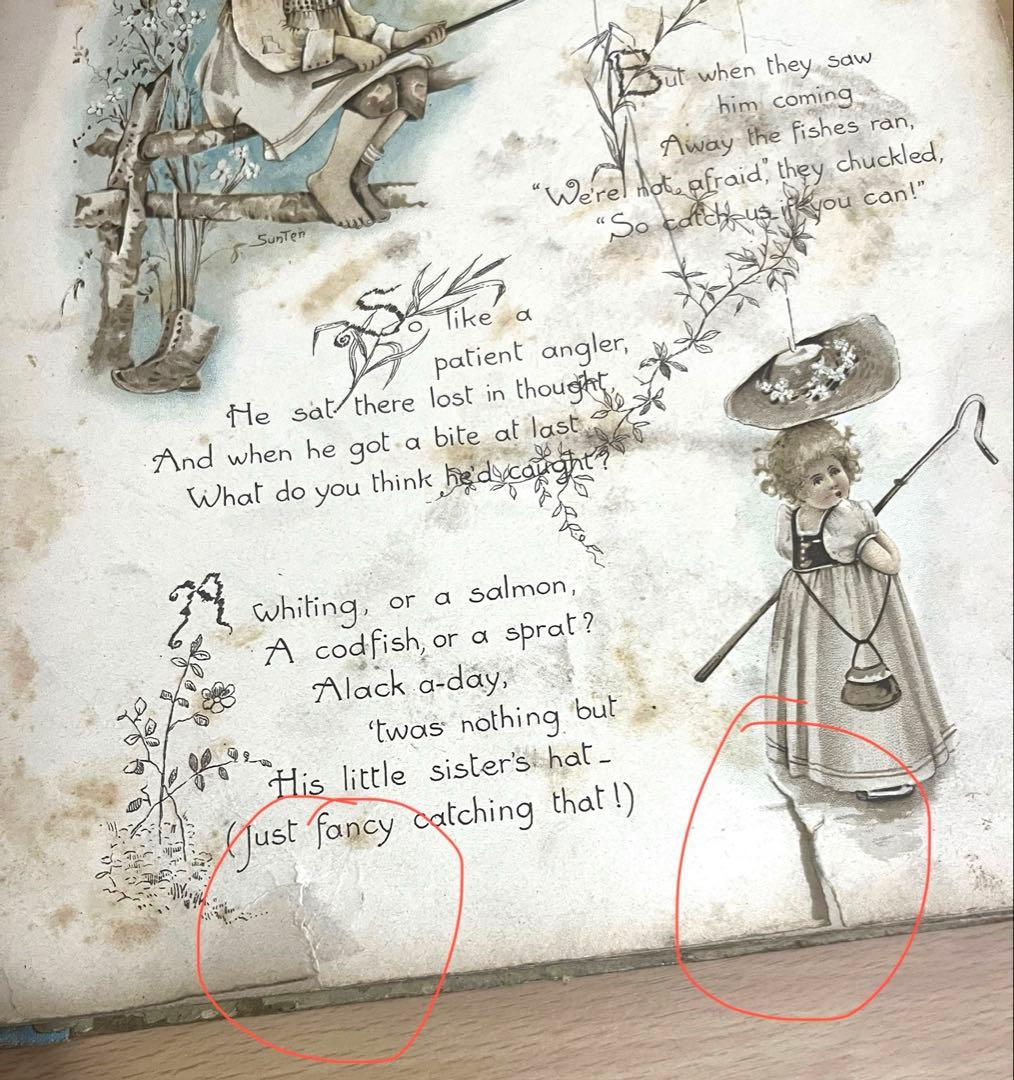 But when they saw
him coming
Away the fishes ran,
"We're not afraid", they chuckled,
"So catch us if you can!"
SunTer
So like a
patient angler,
He sat there lost in thought,
And when he got a bite at last
What do you think he'd caught?
A whiting, or a salmon,
A codfish, or a sprat?
Alack a-day,
'twas nothing but
His little sister's hat-
(Just fancy catching that!)